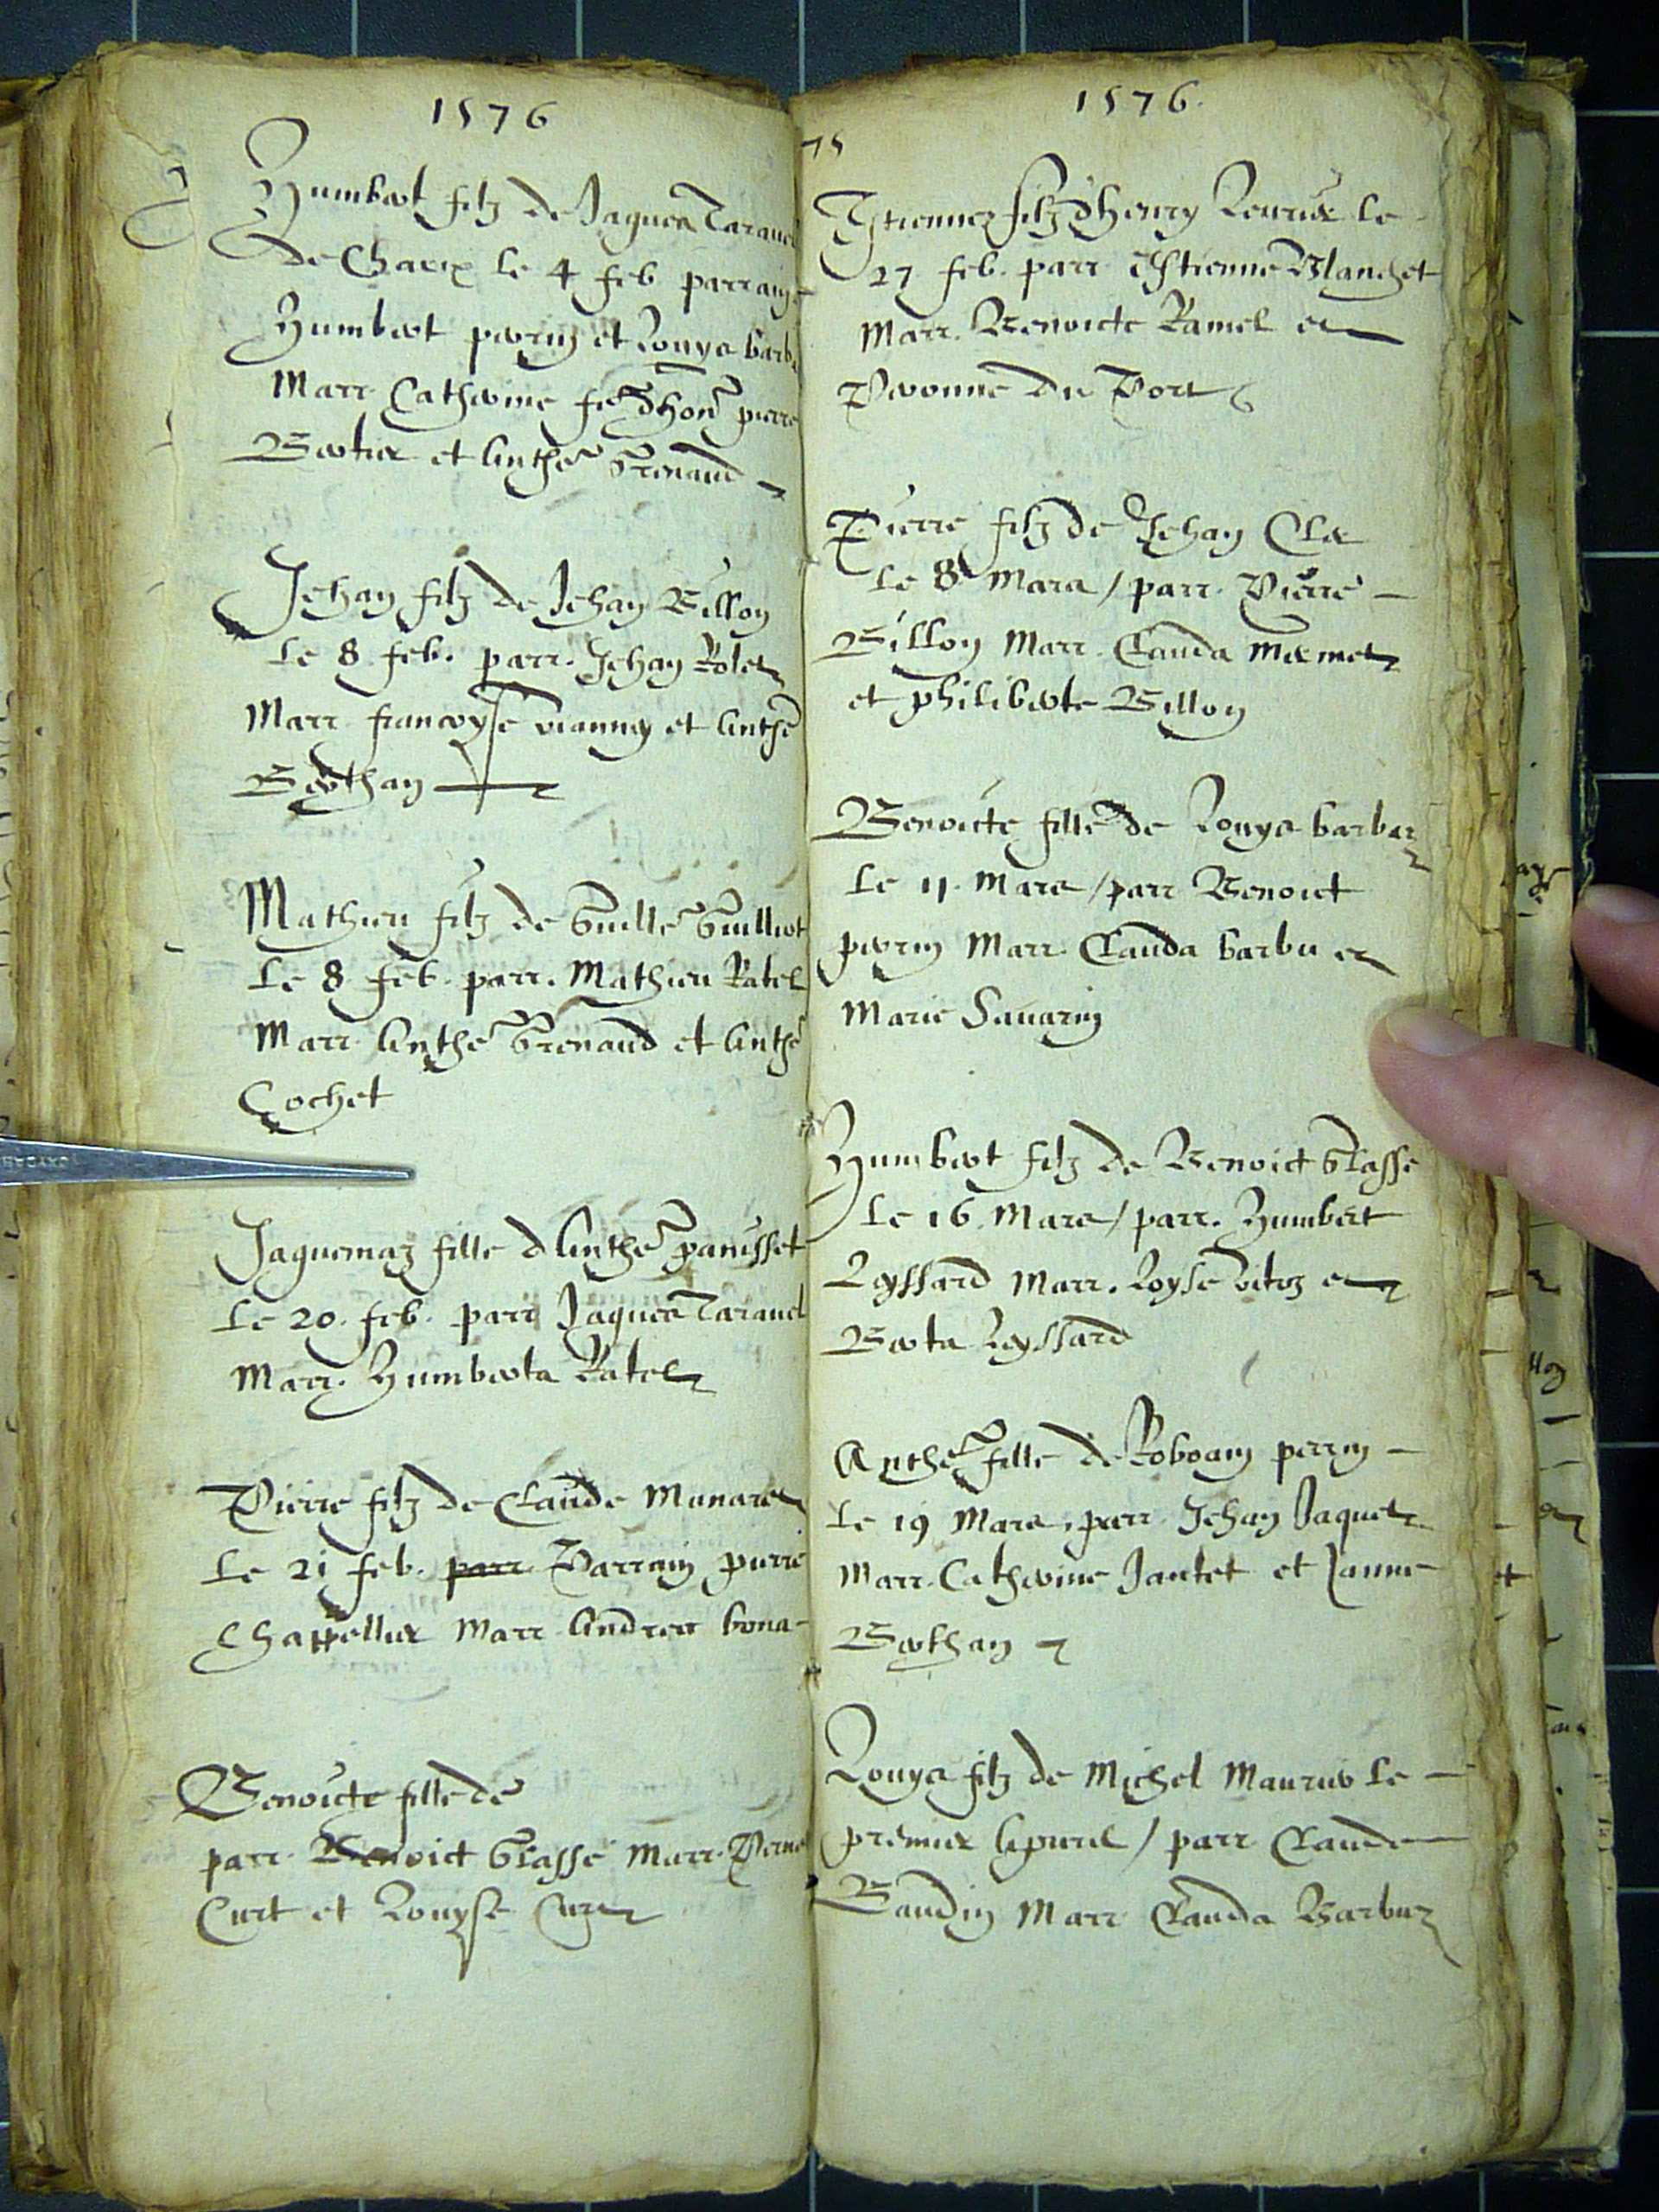 1576
Humbert filz de Jaques Taravel
de Charix le 4 feb parrain
Humbert perrin et Louys barbu
Marr Catherine fe d'hon pierre
Bertier et Anthe Grenaud
Jehan filz de Jehan Billon
le 8 feb. parr. Jehan Rolet
Marr francoyse vianney et Anthe
Berthan
Mathieu filz de Guille Guilliot
le 8 feb. parr. Mathieu Ratel
Marr Anthe Grenaud et Anthe
Cochet
Jaquemaz fille d Anthe panisset
le 20. feb. parr Jaques Taravel
Marr. Humberta Ratel
Pierre filz de Claude Munaret
le 21 feb. parr Parrain pierre
Chappellier Marr Andrea bona-
Benoicte fille de
parr. Benoict Grasse Marr. Perne
Curt et Louyse Curt
1576.
75
Estienne filz d'henry Levrier le
27 feb. parr Estienne Blanchet
Marr. Benoicte Ramel et
Pernonne du Port
Pierre filz de Jehan Cler
le 8 Mars / parr. Pierre
Billon Marr. Clauda Mermet
et philiberte Billon
Benoicte fille de Louys barbu
le 11. Mars / parr Benoict
perrin Marr. Clauda barbu et
Marie Savarin
Humbert filz de Benoict Grasse
le 16. Mars / parr. Humbert
Leyssard Marr. Loyse vitoz et
Berta Leyssard
Anthe fille de Roboam perrin
le 19 Mars. parr. Jehan Jaquet
Marr. Catherine Jantet et Janne
Berthan
Louys filz de Michel Maurier le
premier Apvril / parr Claude
Baudin Marr Clauda Barbu